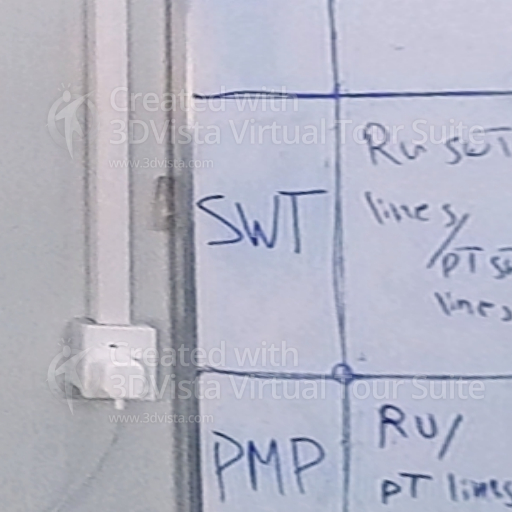 Created with
3DVista Virtual Tour Suite
www.3dvista.com
SWT
Ru SWT
lines/
PT
lines
Created with
3DVista Virtual Tour Suite
www.3dvista.com
PMP
RU/
PT lines